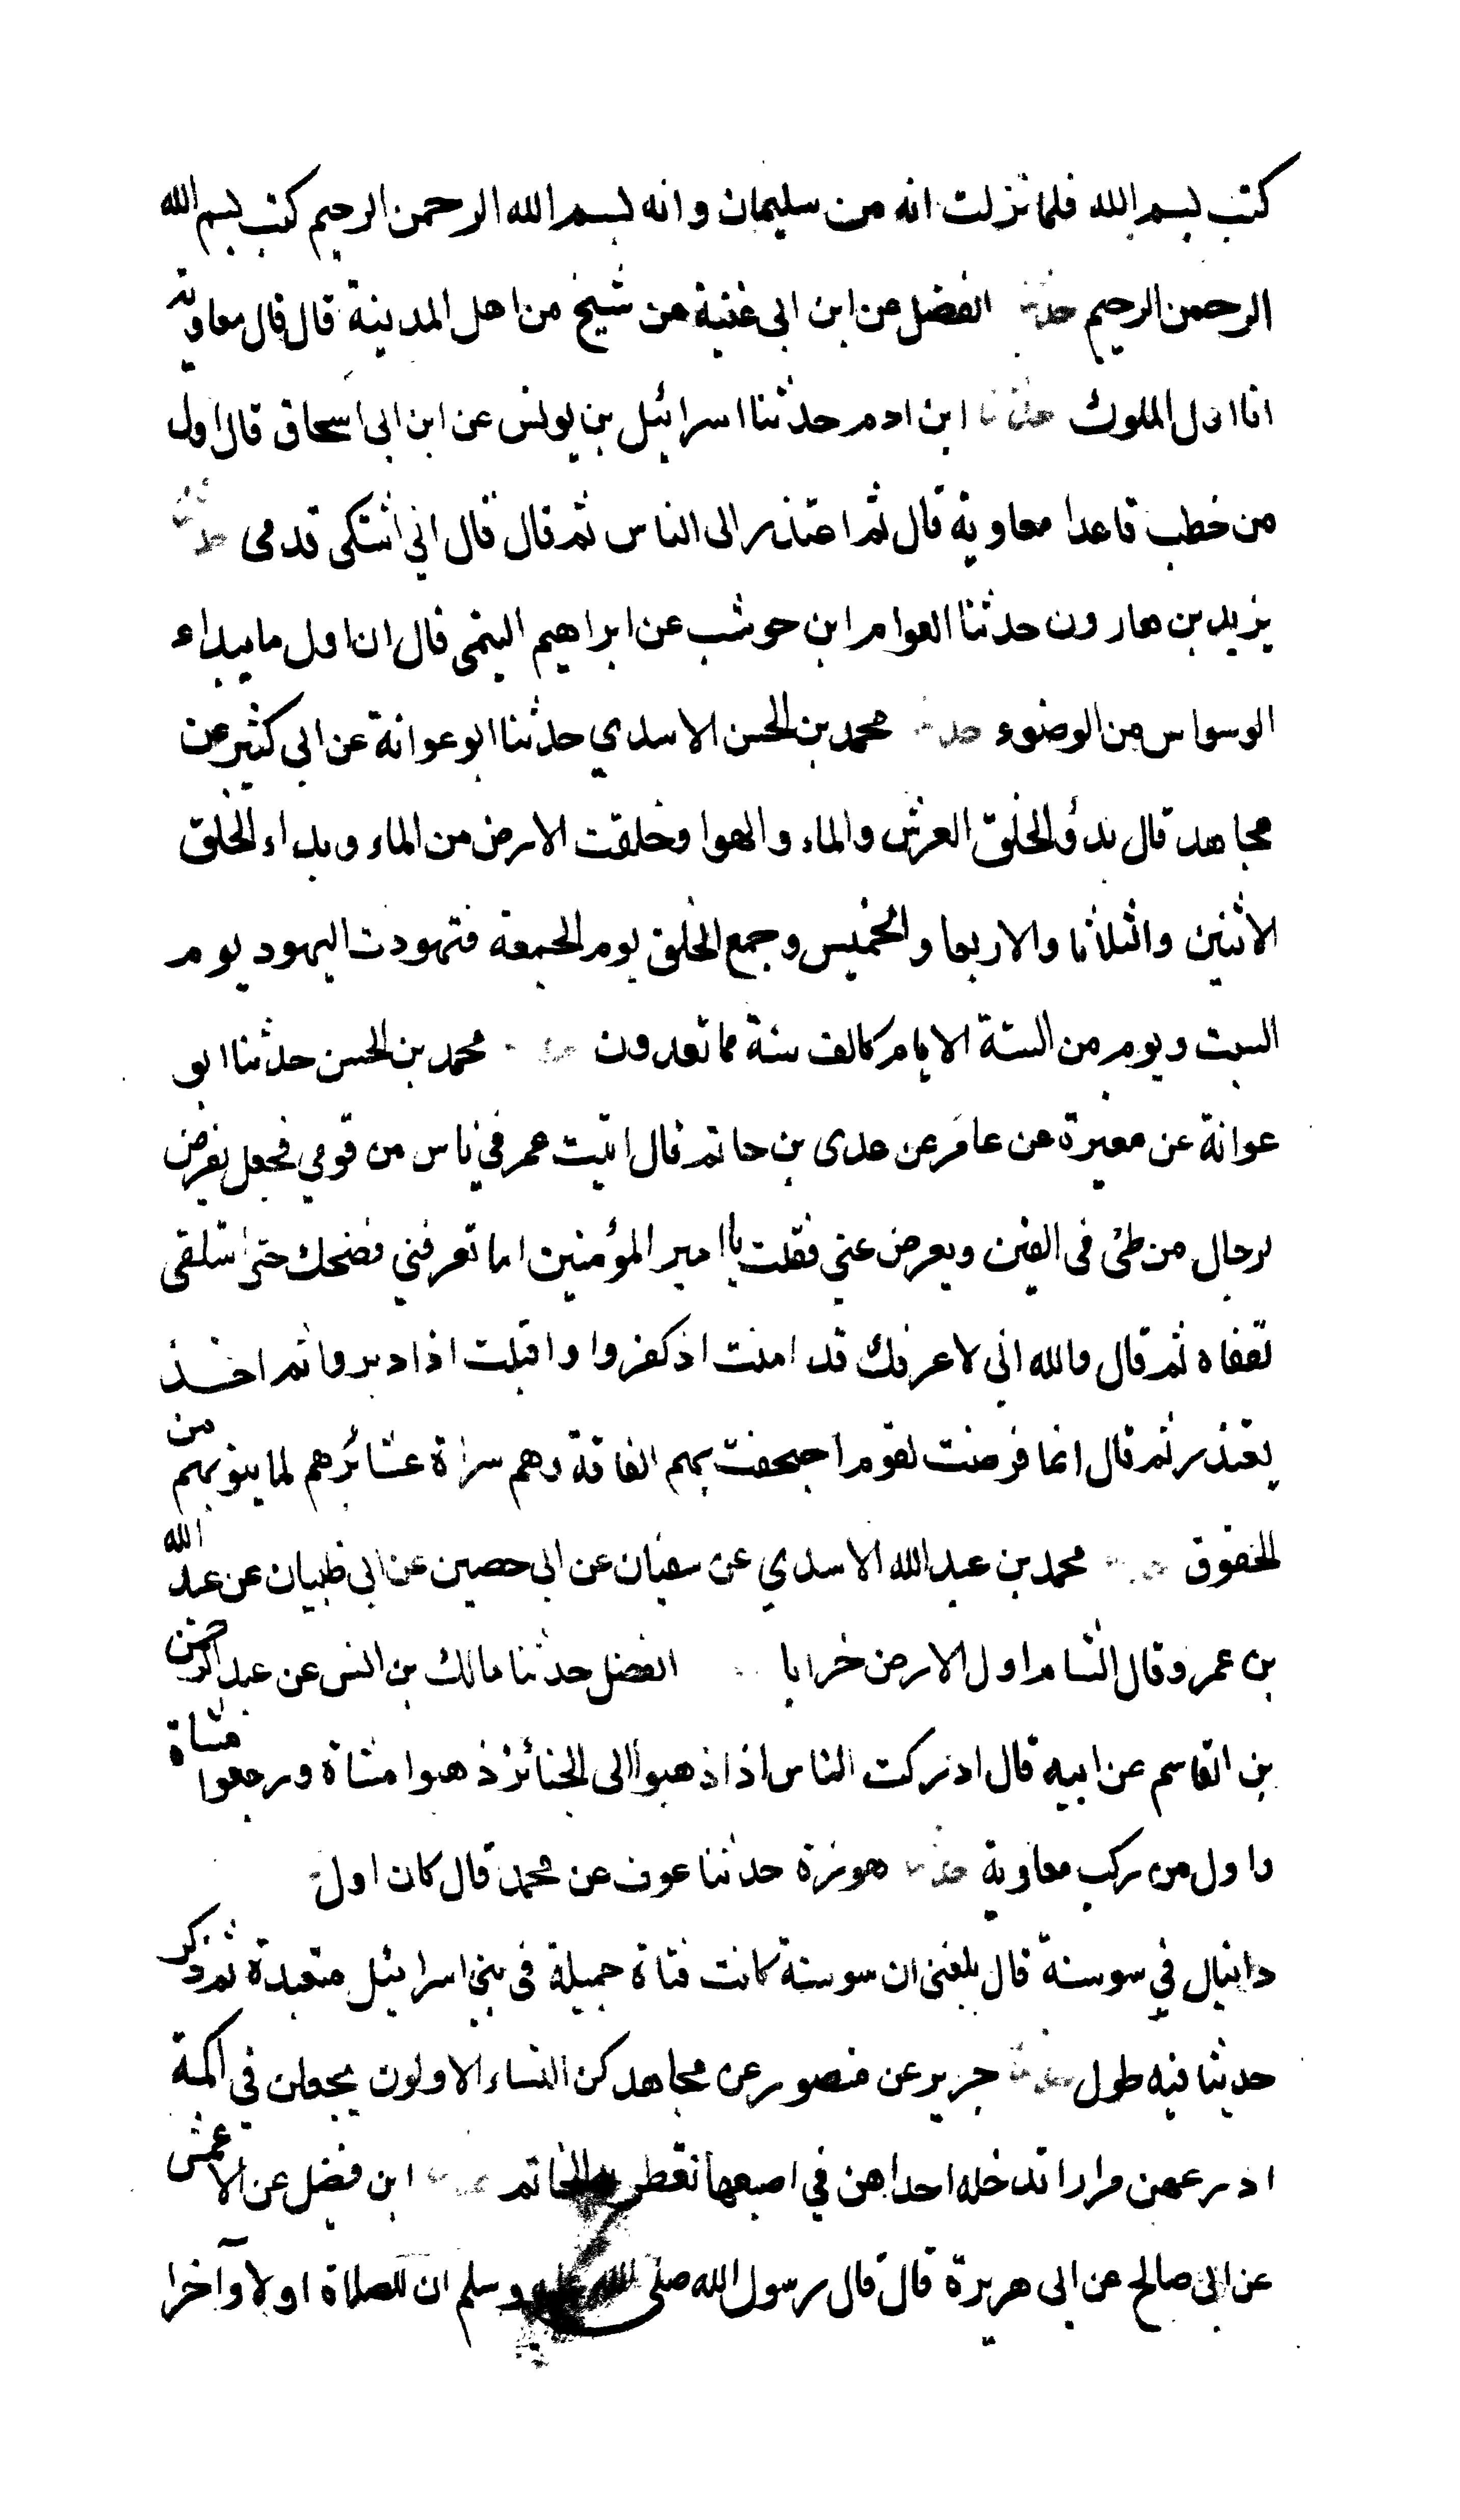 كتب بسم الله فلما نزلت انه من سليمان وانه بسم الله الرحمن الرحيم كتب بسم الله
الرحمن الرحيم حدثنا الفضل عن ابن ابى غنية عن شيخ من اهل المدينة قال قال معاوية
انا اول الملوك حدثنا ابن ادم حدثنا اسرائيل بن يونس عن ابن ابى اسحاق قال اول
من خطب قاعدا معاوية قال ثم اعتذر الى الناس ثم قال قال اني اشتكى قدمى حدثنا
يزيد بن هارون حدثنا العوام ابن حوشب عن ابراهيم التيمى قال ان اول ما يبداء
الوسواس من الوضوء حدثنا محمد بن الحسن الاسدي حدثنا ابو عوانة عن ابي كثير عن
مجاهد قال بدؤ الخلق العرش والماء والهوا وخلقت الارض من الماء وبداء الخلق
الاثنين والثلاثا والاربعا والخميس وجمع الخلق يوم الجمعة فتهودت اليهود يوم
السبت ويوم من الستة الايام كالف سنة مما تعدون حدثنا محمد بن الحسن حدثنا ابو
عوانة عن مغيرة عن عامر عن عدى بن حاتم قال اتيت عمر في ناس من قومي فجعل يفرض
لرجال من طئ فى الفين ويعرض عني فقلت يا امير المؤمنين اما تعرفني فضحك حتى استلقى
لقفاه ثم قال والله اني لاعرفك قد امنت اذ كفروا واقبلت اذ ادبروا ثم اخذ
يعتذر ثم قال انما فرضت لقوم اجحفت بهم الفاقة وهم سراة عشائرهم لما ينوبهم من
الحقوق حدثنا محمد بن عبد الله الاسدي عن سفيان عن ابى حصين عن ابى ظبيان عن عبد الله
بن عمرو قال الشام اول الارض خرابا الفضل حدثنا مالك بن انس عن عبد الرحمن
بن القاسم عن ابيه قال ادركت الناس اذا ذهبوا الى الجنائز ذهبوا مشاة ورجعوا مشاة
واول من ركب معاوية حدثنا هوذة حدثنا عوف عن محمد قال كان اول
دانيال في سوسنة قال بلغنى ان سوسنة كانت فتاة جميلة فى بني اسرائيل متعبدة ثم ذكر
حديثا فيه طول حدثنا جرير عن منصور عن مجاهد كن النساء الاولون يجعلن في اكمة
ادرعهن مزارا تدخله احداهن في اصبعها تغطى به الخاتم حدثنا ابن فضل عن الاعمش
عن ابى صالح عن ابى هريرة قال قال رسول الله صلى الله عليه وسلم ان للصلاة اولا وآخرا